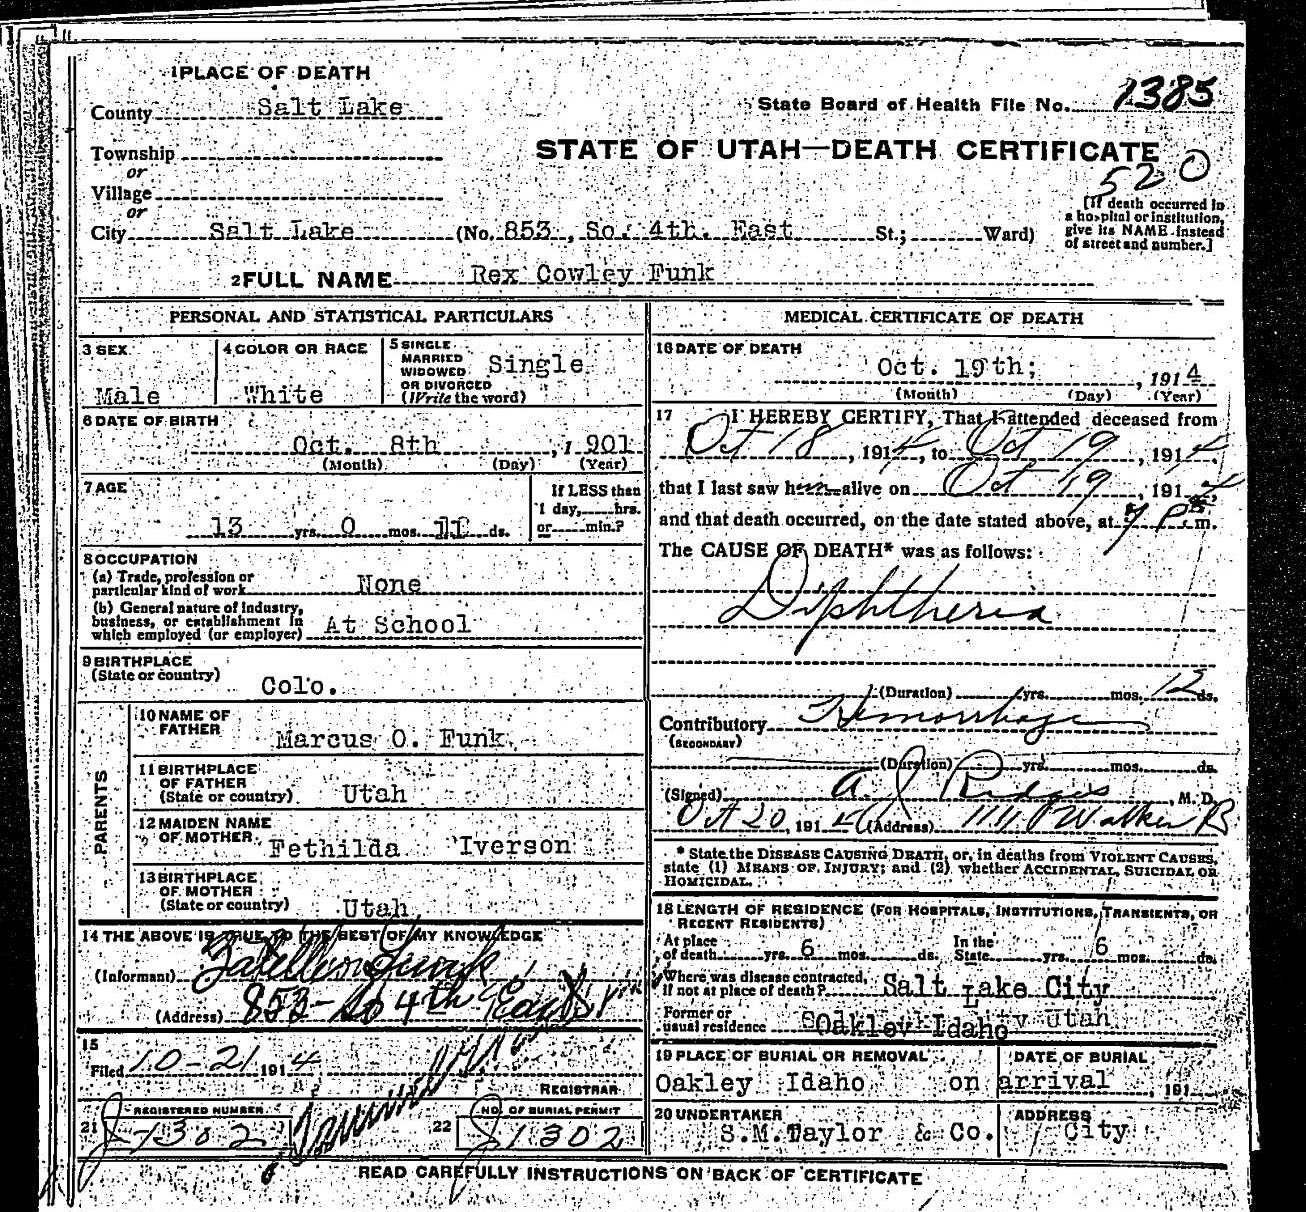 1 PLACE OF DEATH
County Salt Lake
State Board of Health File No. 1385
Township
or
STATE OF UTAH—DEATH CERTIFICATE
520
Village
or
City Salt Lake (No. 853, So. 4th. East St.; Ward)
[If death occurred in
a hospital or institution,
give its NAME instead
of street and number.]
2 FULL NAME Rex Cowley Funk
PERSONAL AND STATISTICAL PARTICULARS
3 SEX
Male
4 COLOR OR RACE
White
5 SINGLE
MARRIED
WIDOWED
OR DIVORCED
(Write the word)
Single
6 DATE OF BIRTH
Oct. 8th, 1901
(Month) (Day) (Year)
7 AGE
13 yrs. 0 mos. 11 ds.
If LESS than
1 day, hrs.
or min.?
8 OCCUPATION
(a) Trade, profession or
particular kind of work None
(b) General nature of industry,
business, or establishment in
which employed (or employer) At School
9 BIRTHPLACE
(State or country)
Colo.
PARENTS
10 NAME OF
FATHER
Marcus O. Funk
11 BIRTHPLACE
OF FATHER
(State or country) Utah
12 MAIDEN NAME
OF MOTHER Fethilda Iverson
13 BIRTHPLACE
OF MOTHER
(State or country) Utah
14 THE ABOVE IS TRUE TO THE BEST OF MY KNOWLEDGE
(Informant) Funk
(Address) 853 - So 4th East
15
Filed 10-21 1914
REGISTRAR
21 REGISTERED NUMBER
J 1302
22 NO. OF BURIAL PERMIT
J 1302
MEDICAL CERTIFICATE OF DEATH
16 DATE OF DEATH
Oct. 19th; , 1914
(Month) (Day) (Year)
17 I HEREBY CERTIFY, That I attended deceased from
Oct 18, 1914, to Oct 19, 1914,
that I last saw him alive on Oct 19, 1914,
and that death occurred, on the date stated above, at 7 P.m.
The CAUSE OF DEATH* was as follows:
Diphtheria
(Duration) yrs. mos. 12 ds.
Contributory Hemorrhage
(SECONDARY)
(Duration) yrs. mos. ds.
(Signed) A J Ridges, M. D.
Oct 20, 1914 (Address) Walker B
* State the DISEASE CAUSING DEATH, or, in deaths from VIOLENT CAUSES,
state (1) MEANS OF INJURY; and (2) whether ACCIDENTAL, SUICIDAL OR
HOMICIDAL.
18 LENGTH OF RESIDENCE (FOR HOSPITALS, INSTITUTIONS, TRANSIENTS, OR
RECENT RESIDENTS)
At place
of death yrs. 6 mos. ds.
In the
State yrs. 6 mos. ds.
Where was disease contracted,
if not at place of death? Salt Lake City
Former or
usual residence Oakley Idaho Utah
19 PLACE OF BURIAL OR REMOVAL
Oakley Idaho
DATE OF BURIAL
on arrival, 191
20 UNDERTAKER
S.M.Taylor & Co.
ADDRESS
City
READ CAREFULLY INSTRUCTIONS ON BACK OF CERTIFICATE